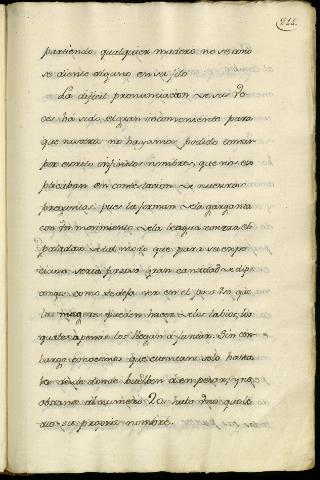 211.
partiendo qualquier madero no se ano
se diente alguno en su filo
La dificil pronunciacion de su Vo
ces há sido el gran inconveniente para
que nosotros no hayamos podido tomar
por escrito infinitos nombres, que nos ex
plicaban en contestacion de nuestras
preguntas pues la forman de la garganta
con un movimiento de la lengua contra el
Paladar de tal modo que para su expre
cion seria precisa gran cantidad de dip
tongos como se deja ver en el gesto que
las mugeres pueden hacer de los labios, los
quales apenas los llegan á juntar. Sin em
bargo conocemos que cuentan solo hasta
diez donde buelben á empezar, y no
obstante al numero 20 hubo uno que le
dio su proprio nombre.